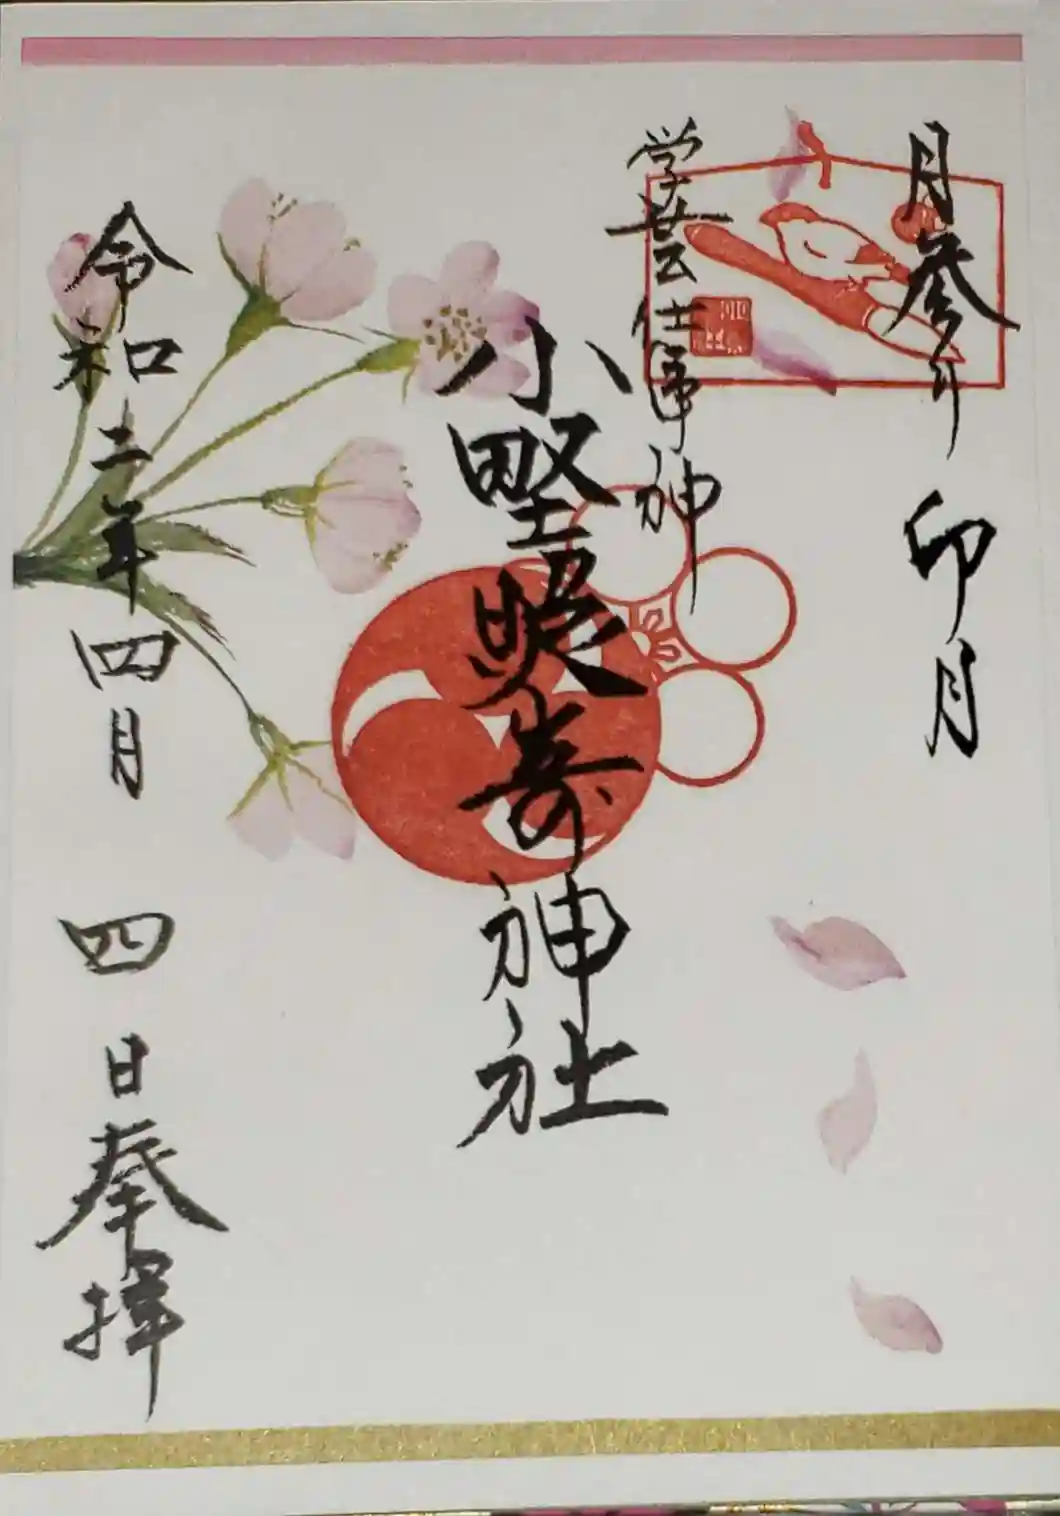 月参り 卯月
学芸仕事神
小野照崎神社
令和二年四月四日奉拝